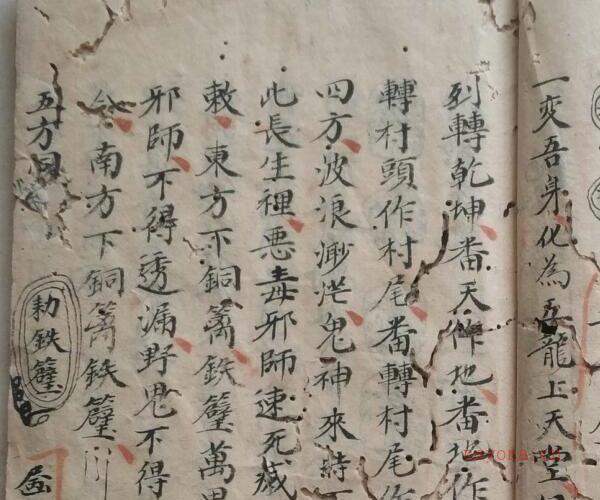 一变吾身化為五龍上天堂
列轉乾坤番天作地番地作
轉村頭作村尾番轉村尾作
四方波浪渺茫鬼神來時
此長生裡悪毒邪師速死藏
敕東方下銅篱鉄籬萬里
邪師不得透漏野鬼不得
南方下銅篱鉄籬
五方同
勅鉄籬